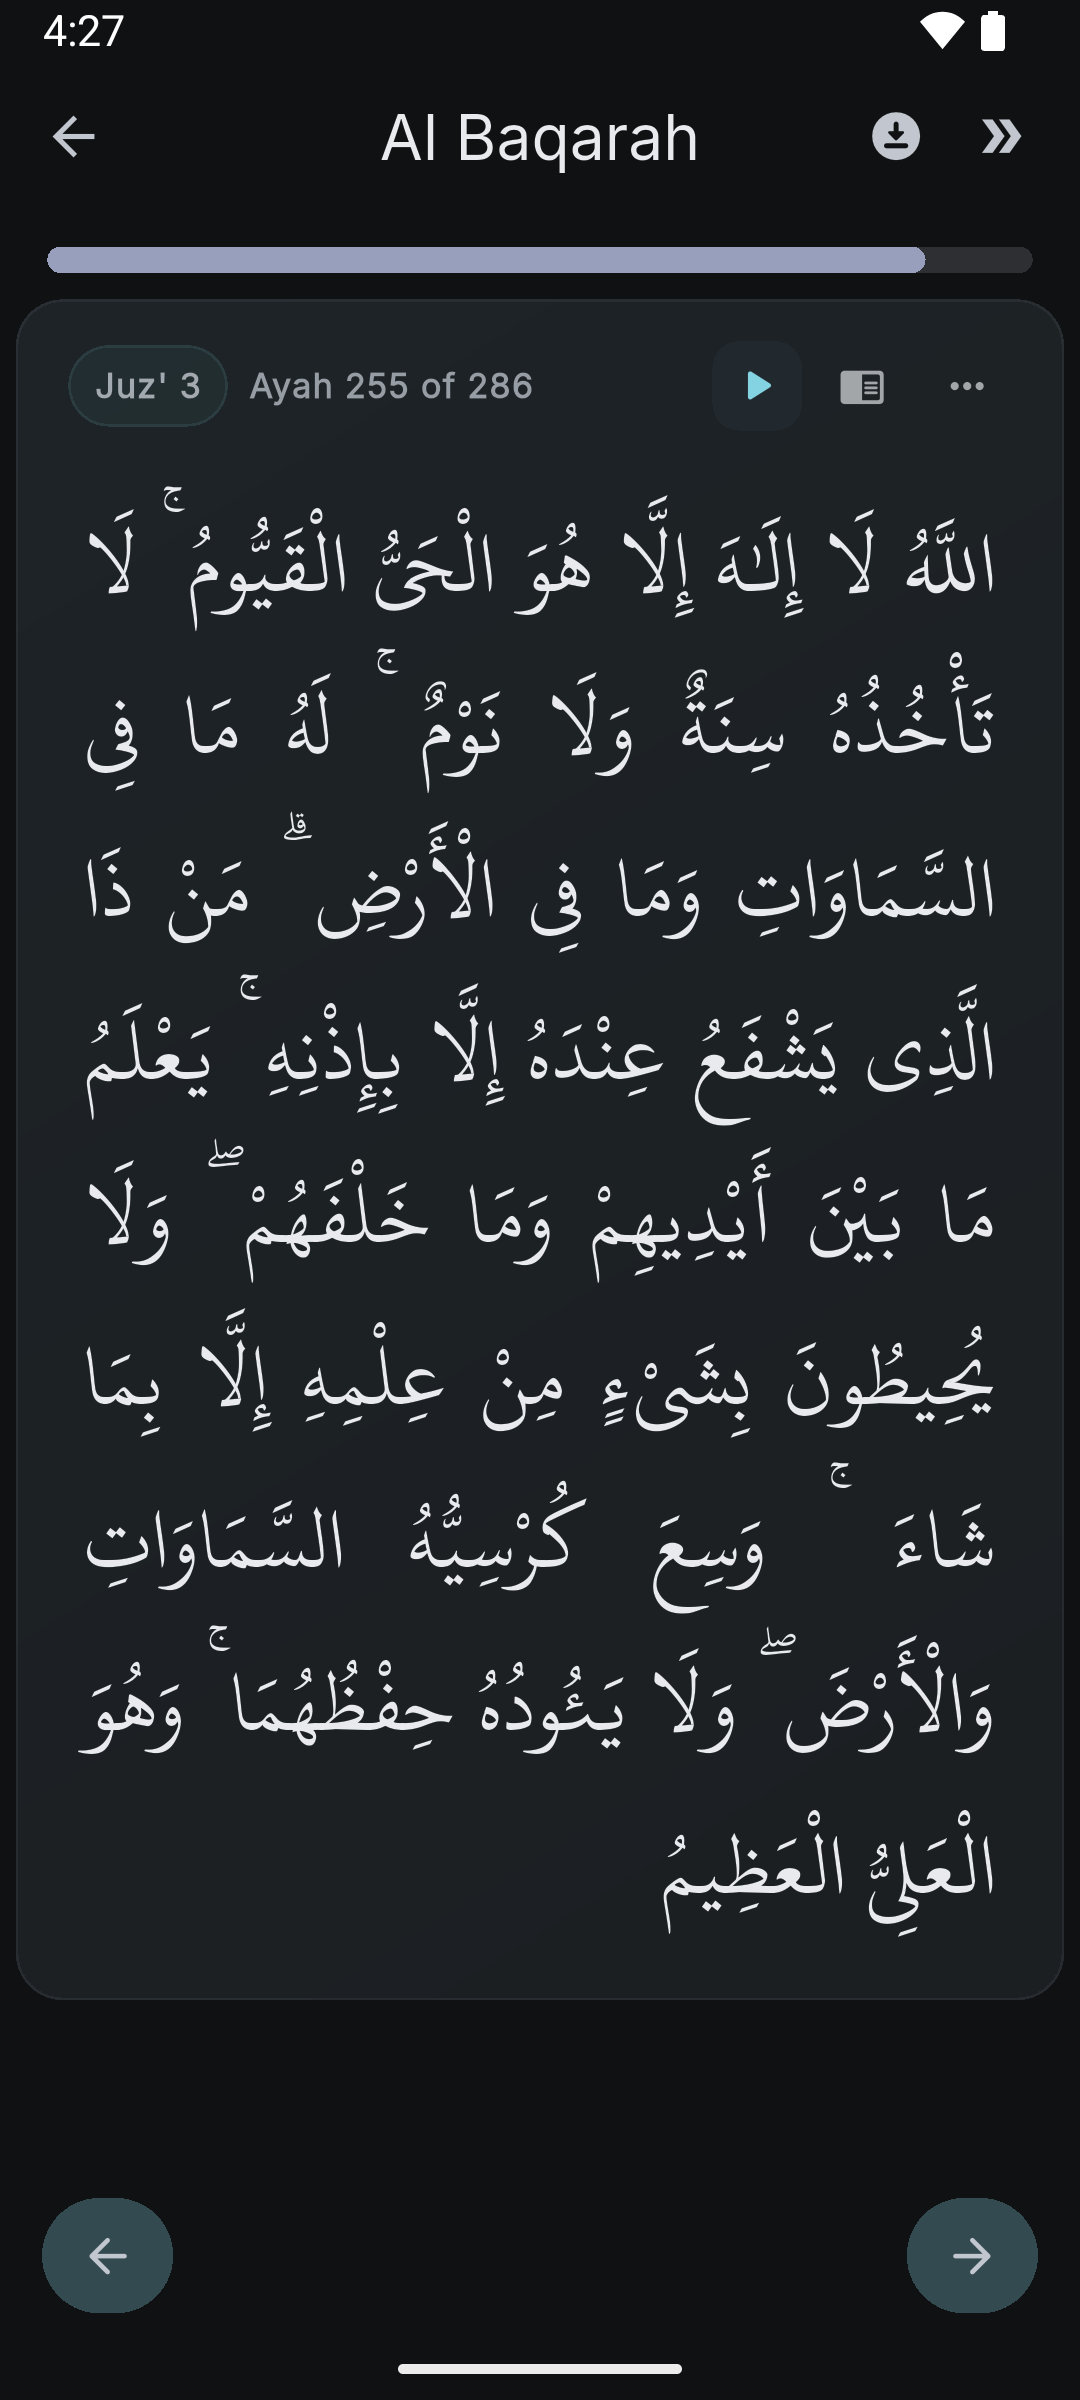 4:27
Al Baqarah
Juz' 3 Ayah 255 of 286
اللَّهُ لَا إِلَٰهَ إِلَّا هُوَ الْحَىُّ الْقَيُّومُ ۚ لَا
تَأْخُذُهُ سِنَةٌ وَلَا نَوْمٌ ۚ لَهُ مَا فِى
السَّمَاوَاتِ وَمَا فِى الْأَرْضِ ۗ مَنْ ذَا
الَّذِى يَشْفَعُ عِنْدَهُ إِلَّا بِإِذْنِهِ ۚ يَعْلَمُ
مَا بَيْنَ أَيْدِيهِمْ وَمَا خَلْفَهُمْ ۖ وَلَا
يُحِيطُونَ بِشَىْءٍ مِنْ عِلْمِهِ إِلَّا بِمَا
شَاءَ ۚ وَسِعَ كُرْسِيُّهُ السَّمَاوَاتِ
وَالْأَرْضَ ۖ وَلَا يَئُودُهُ حِفْظُهُمَا ۚ وَهُوَ
الْعَلِىُّ الْعَظِيمُ